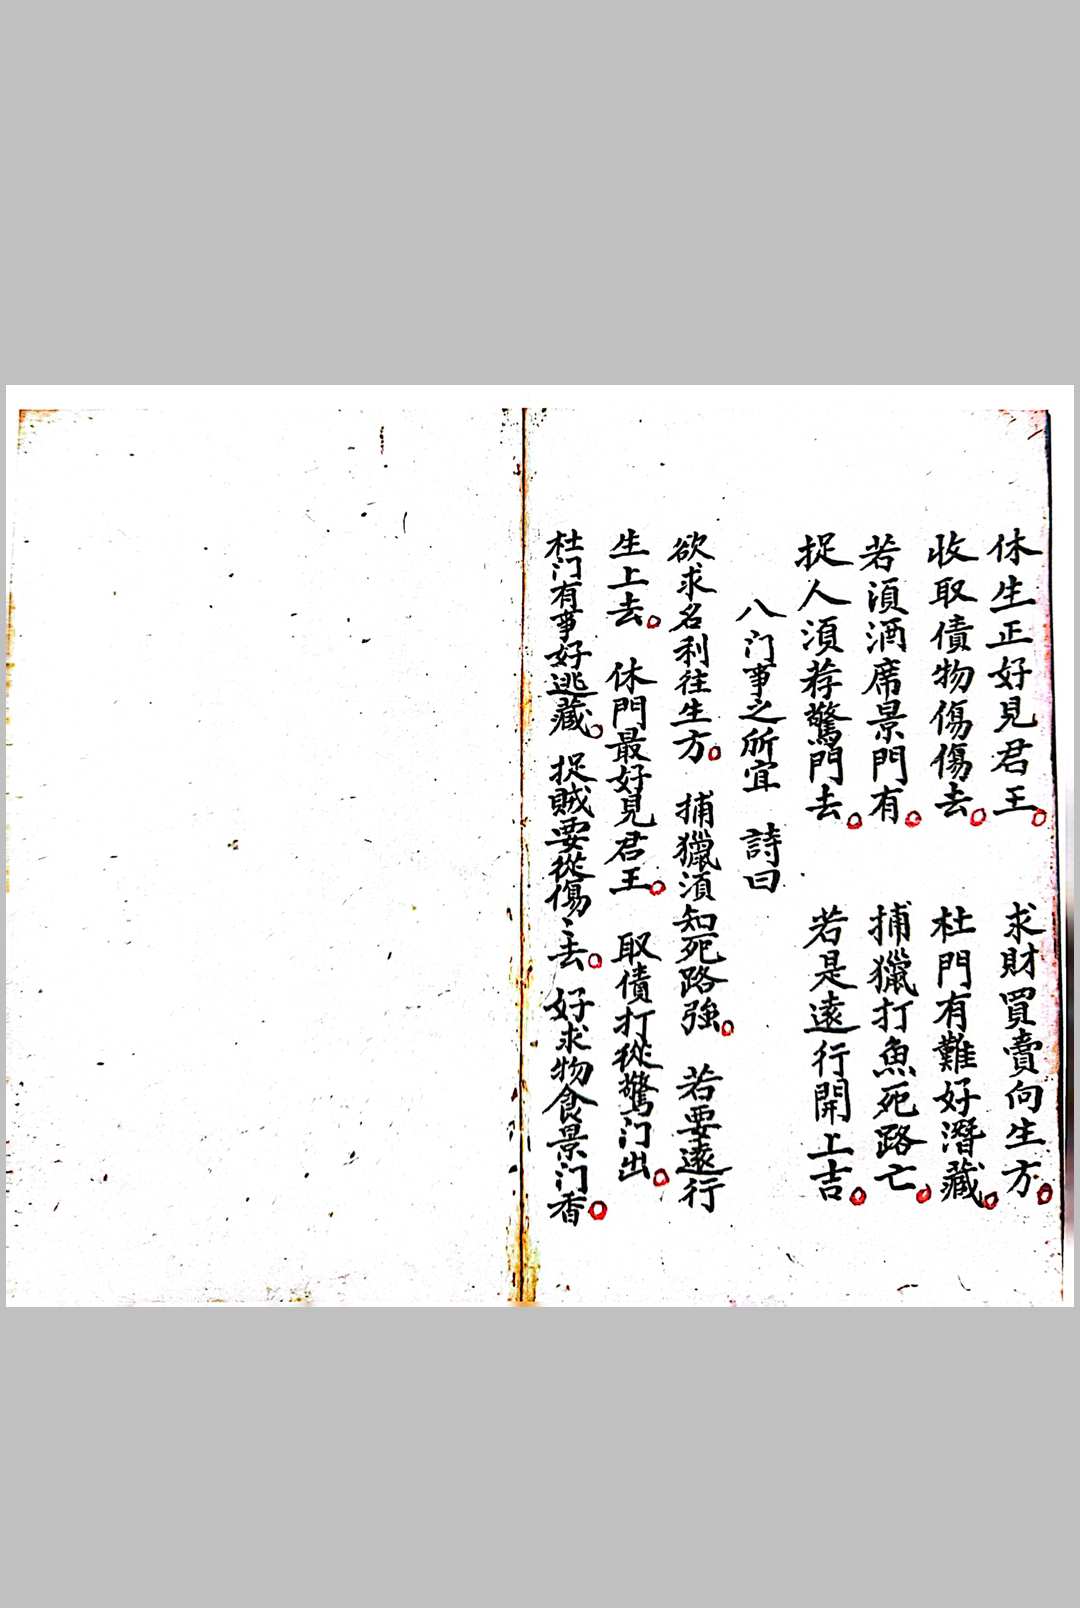 休生正好見君王。求財買賣向生方。
收取債物傷傷去。杜門有難好潛藏。
若湏酒席景門有。捕獵打魚死路亡。
捉人湏荐驚門去。若是遠行開上吉。
八门事之所宜 詩曰
欲求名利往生方。捕獵湏知死路強。若要遠行
生上去。休門最好見君王。取債打從驚门出。
杜门有事好逃藏。捉賊要從傷〻去。好求物食景门香。